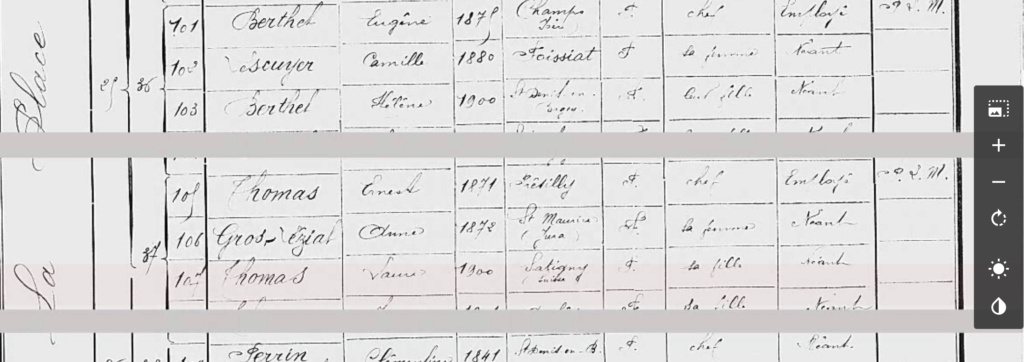 Place
La
101 Berthet Eugène 1875 Champs Isère F. chef Employé P. L. M.
35 36 102 Lescuyer Camille 1880 Foissiat F. sa femme Néant
103 Berthet Hélène 1900 St Denis en Bugey F. leur fille Néant
105 Thomas Ernest 1871 F. chef Employé P. L. M.
37 106 Gros-Vézial Anne 1872 St Maurice (Jura) F. sa femme Néant
107 Thomas Laure 1900 Satigny Suisse F. sa fille Néant
F. sa fille Néant
Perrin 1841 St Denis en B. F. chef Néant